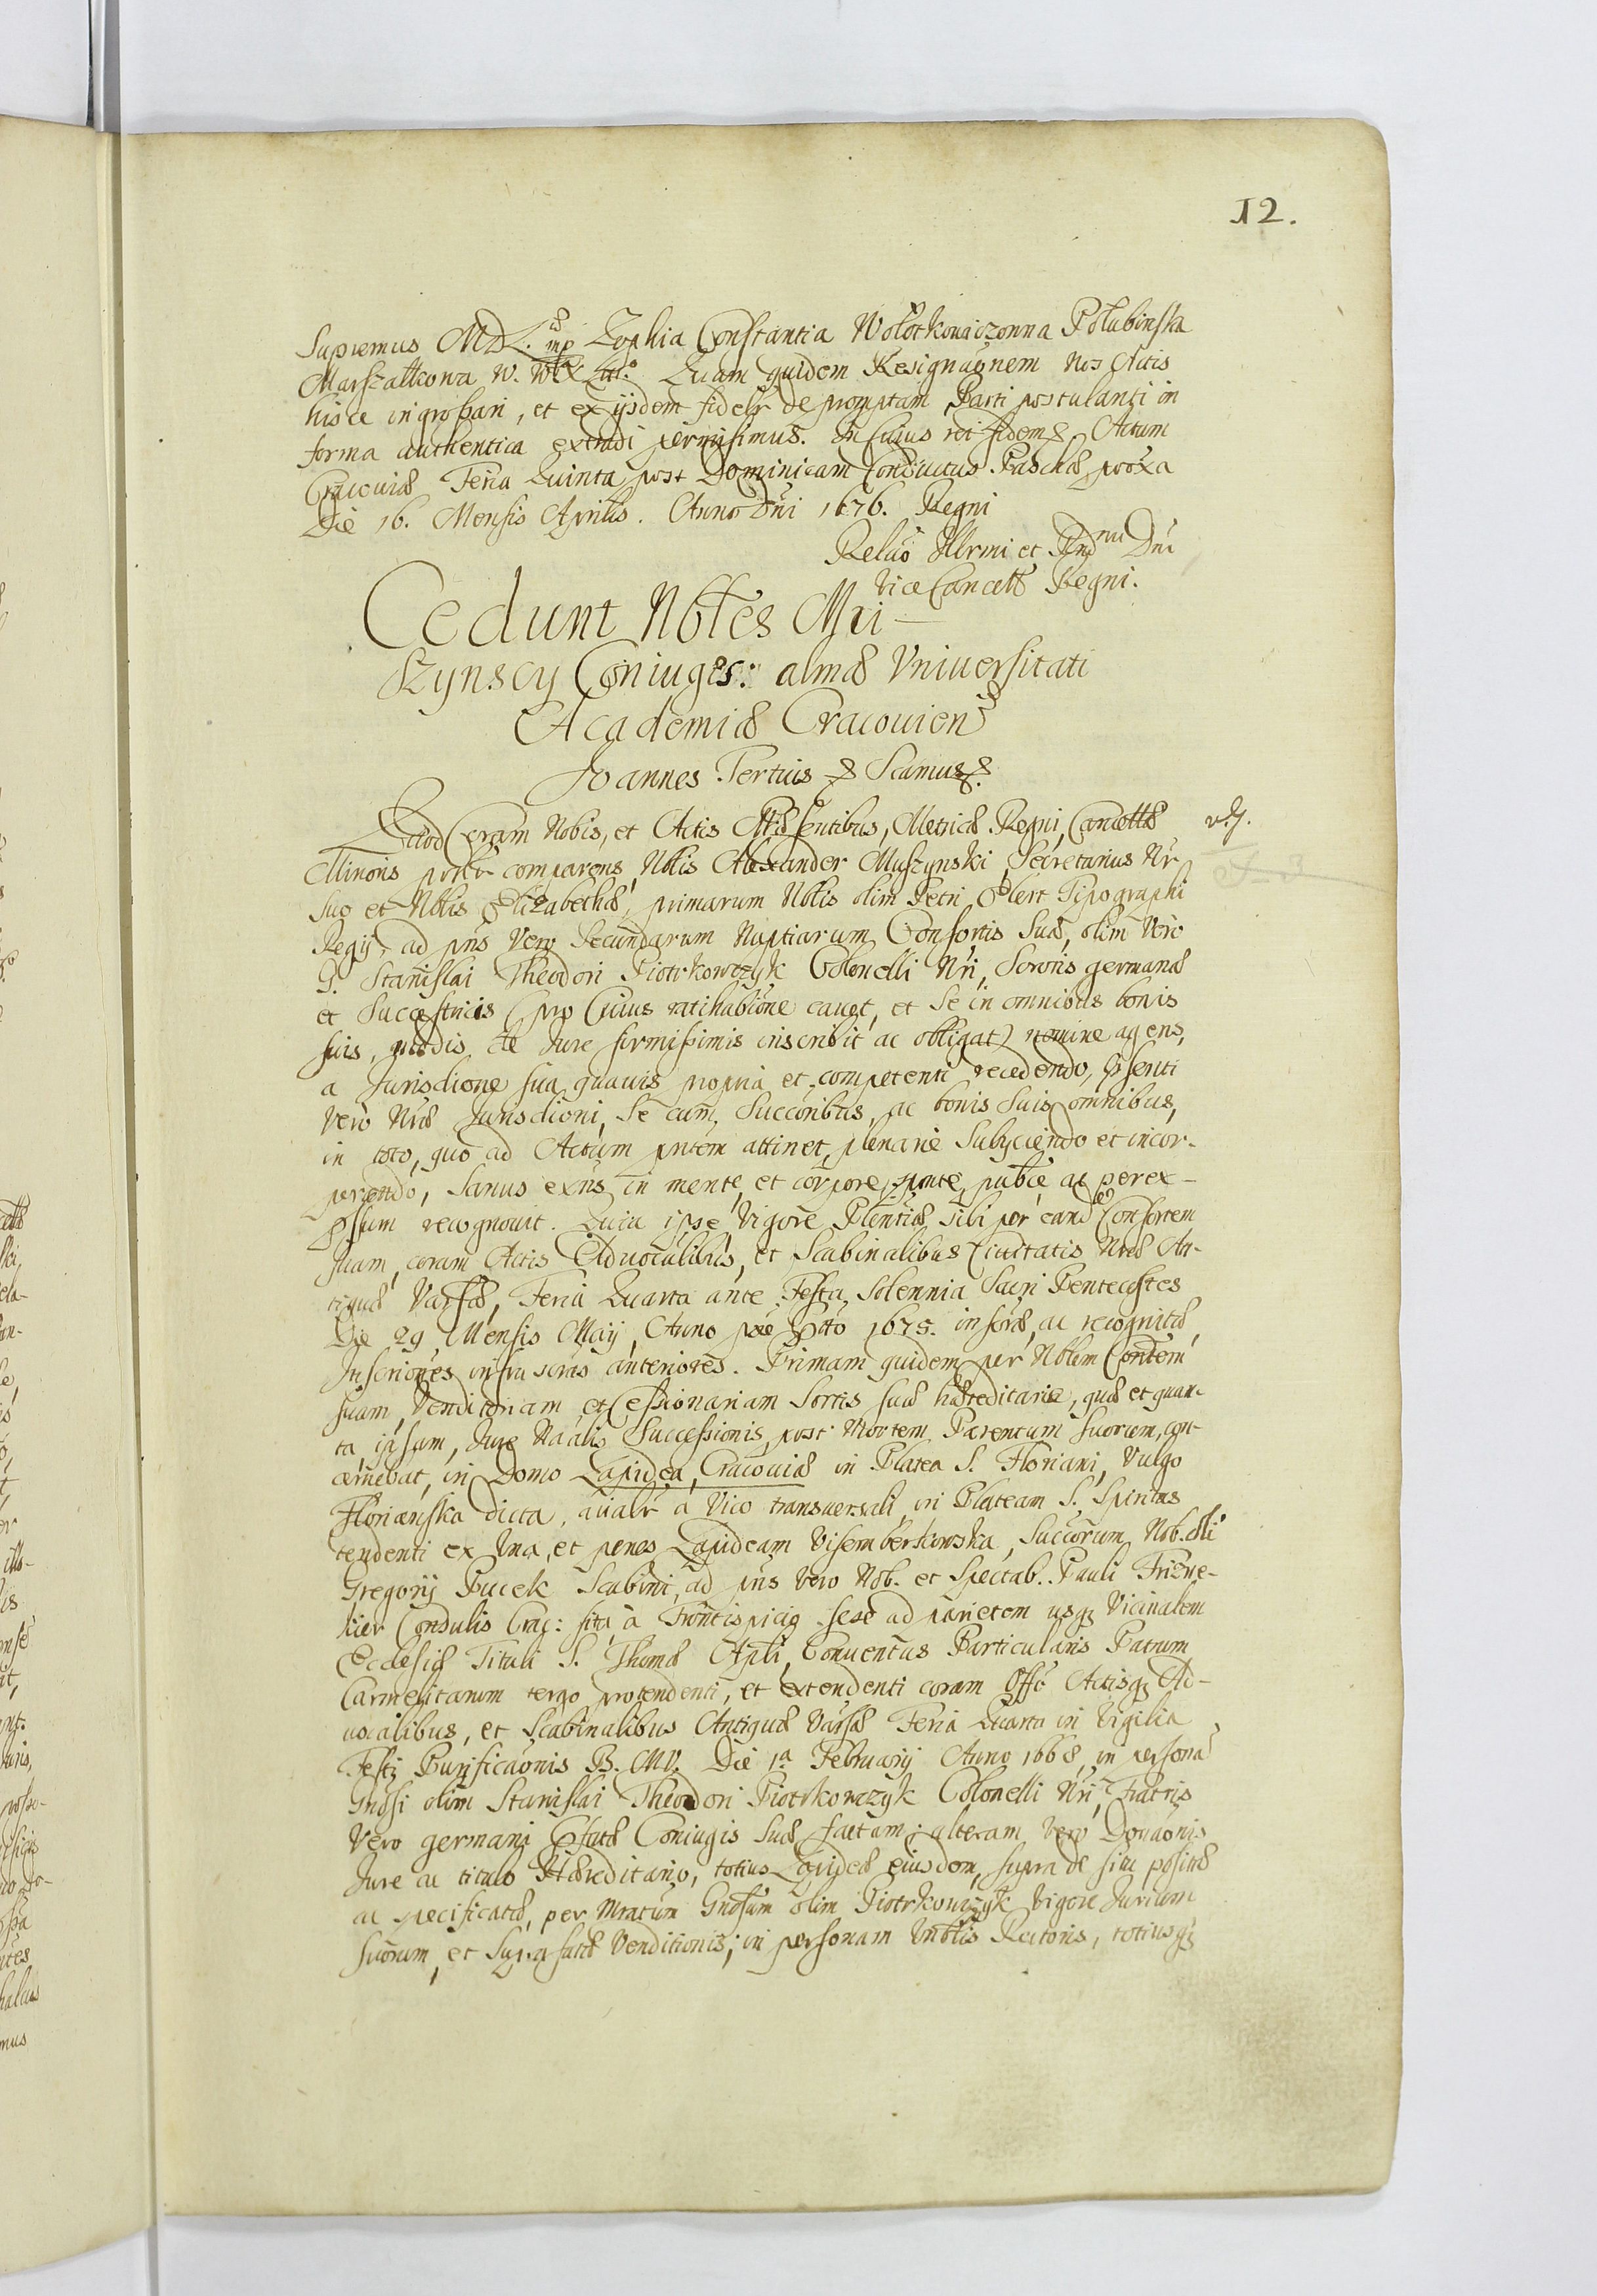 12.
Supremus MDL. mp Zophia Constantia Wołotkowiczonna Połubinska
Marszałkowa W. WX Litt. Quam quidem Resignaõnem Nos Actis
hisce ingrossari, et ex ijsdem fidelr depromptam Parti postulanti in
forma authentica extradi permisimus. In Cuius rei fidem & Actum
Cracoviæ Feria Quinta post Dominicam Conductus Paschæ proxa
Die 16. Mensis Aprilis. Anno Dni 1676. Regni
Relaõ Illrmi et Rndmi Dni
Vice Cancell Regni.
Cedunt Nobles Mu-
szynscy Coniuges: almæ Vniuersitati
Academiæ Cracouien
Joannes Tertius & Scamus &.
Quod Coram Nobis, et Actis Præsentibus, Metricæ Regni, Cancellæ
Minoris psnlr comparens Nblis Alexander Muszynski Secretarius Nr
suo et Nblis Elizabethæ, primarum Nblis olim Petri Elert Tipographi
Regij, ad pns Vero Secundarum Nuptiarum Consortis Suæ, olim Vero
G. Stanislai Theodori Piotrkowczyk Colonelli Nri, Sororis germanæ
et Successtricis (pro Cuius ratihabitione cauet, et Se in omnibus bonis
suis, modis de Jure firmissimis inscribit ac obligat) nomine agens,
a Jurisdione sua quauis propria et competenti recedendo, psenti
Vero Nræ Jurisdioni, Se cum Succoribus, ac bonis Suis omnibus,
in toto, quo ad Actum pntem attinet, plenarie Subijciendo et incor-
porando, Sanus exns in mente et corpore, sponte, publce ac perex-
pssum recognouit. Quia ipse Vigore Plentiæ sibi per eand Consortem
suam, coram Actis Aduocalibus, et Scabinalibus Ciuitatis Nræ An-
tiquæ Varsæ, Feria Quarta ante Festa Solennia Sacri Pentecostes
Die 29 Mensis Maij, Anno pxe Ptto 1675. in seræ, ac recognitæ,
Inscriones infra scras anteriores. Primam quidem per Noblem Contem
suam, Venditoriam et Cessionariam Sortis suæ hæreditariæ, quæ et quan-
ta ipsam, Jure Naali Successionis, post Mortem Parentum suorum, con-
cernebat, in Domo Lapidea, Cracouiæ in Platea S. Floriani, Vulgo
Florianska dicta, acialr a Vico transuersali, in Plateam S. Spiritus
tendenti ex Vna, et penes Lapideam Visemberkowska, Succorum Nob. oli
Gregorij Pucek Scabini, ad pns Vero Nob. et Spectab. Pauli Frizne-
kier Consulis Crac: sita, a Frontispicio sese ad parietem usq Vicinalem
Ecclesiæ Tituli S. Thomæ Apli, Conuentus Particularis Patrum
Carmelitarum tergo protendenti, et extendenti coram Offo Actisq Ad-
uocalibus, et Scabinalibus Antiquæ Varsæ Feria Quarta in Vigilia
Festi Purificaonis B. M.V. Die 1a Februarij Anno 1668, in persona
Gnosi olim Stanislai Theodori Piotrkowczyk Colonelli Nri, Fratris
Vero germani Psatæ Coniugis Suæ factam: alteram Vero Donaonis
Jure ac titulo Hæreditario, totius Lapideæ eiusdem, supra de situ positæ
ac specificatæ, per Mratum Gnosum olim Piotrkowczyk Vigore Jurium
suorum, et Supra fatæ Venditionis; in personam Vnblis Rectoris, totiusq